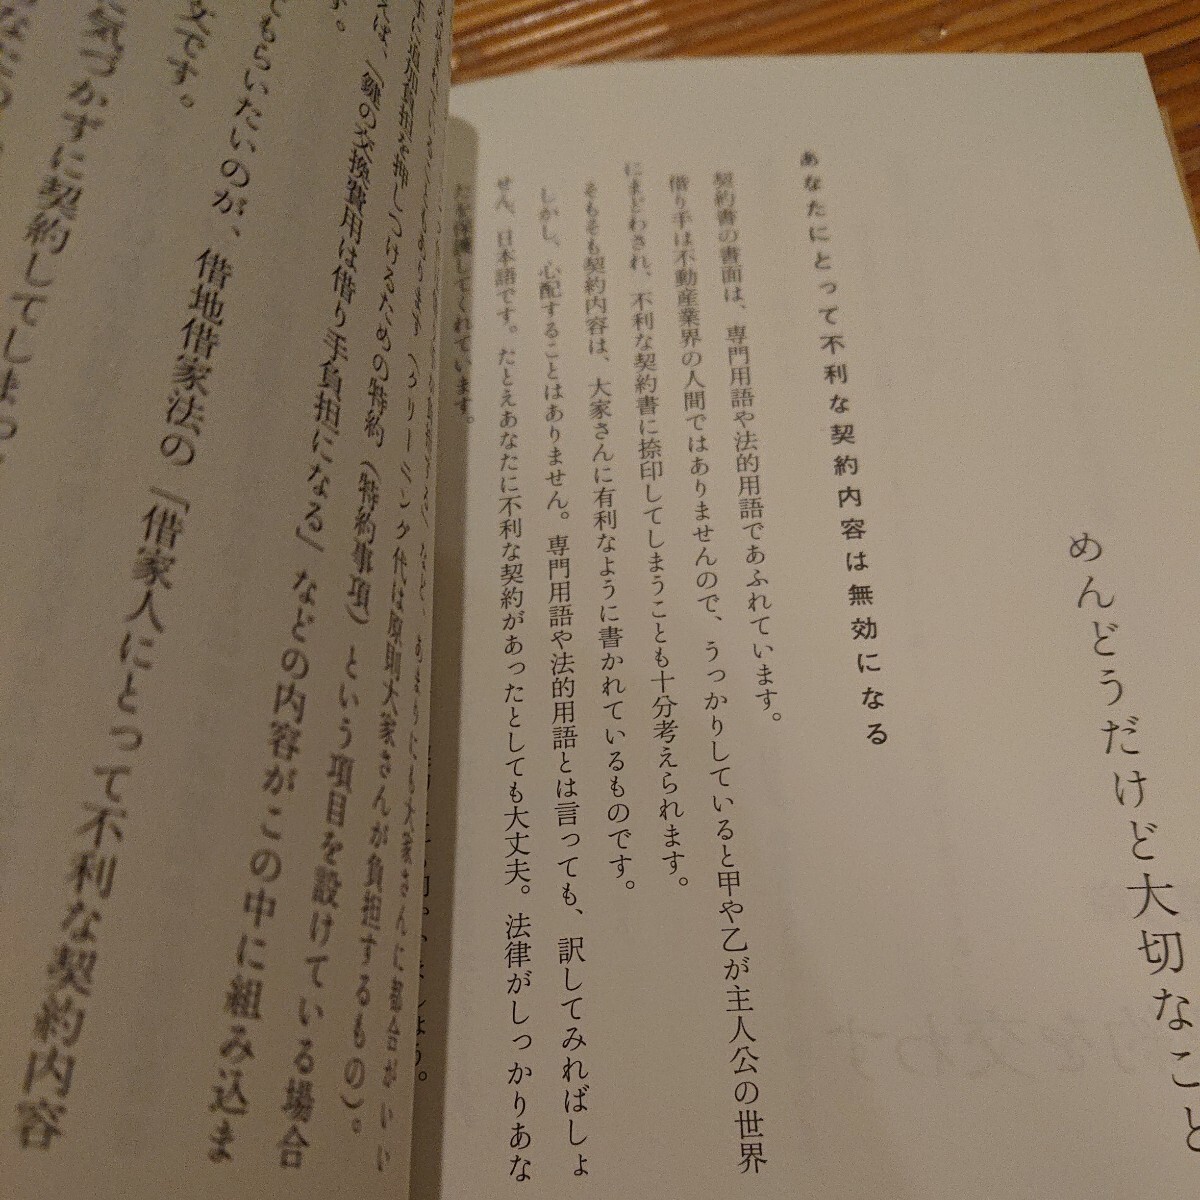 めんどうだけど大切なこと
あなたにとって不利な契約内容は無効になる
契約書の書面は、専門用語や法的用語であふれています。
借り手は不動産業界の人間ではありませんので、うっかりしていると甲や乙が主人公の世界
にまどわされ、不利な契約書に捺印してしまうことも十分考えられます。
そもそも契約内容は、大家さんに有利なように書かれているものです。
しかし、心配することはありません。専門用語や法的用語とは言っても、訳してみればしょ
せん、日本語です。たとえあなたに不利な契約があったとしても大丈夫。法律がしっかりあな
たを保護してくれています。
ましょう。
に追加負担を押しつけるための特約（特約事項）という項目を設けている場合
えば、「鍵の交換費用は借り手負担になる」などの内容がこの中に組み込ま
す。
てもらいたいのが、借地借家法の「借家人にとって不利な契約内容
文です。
気づかずに契約してしまっ